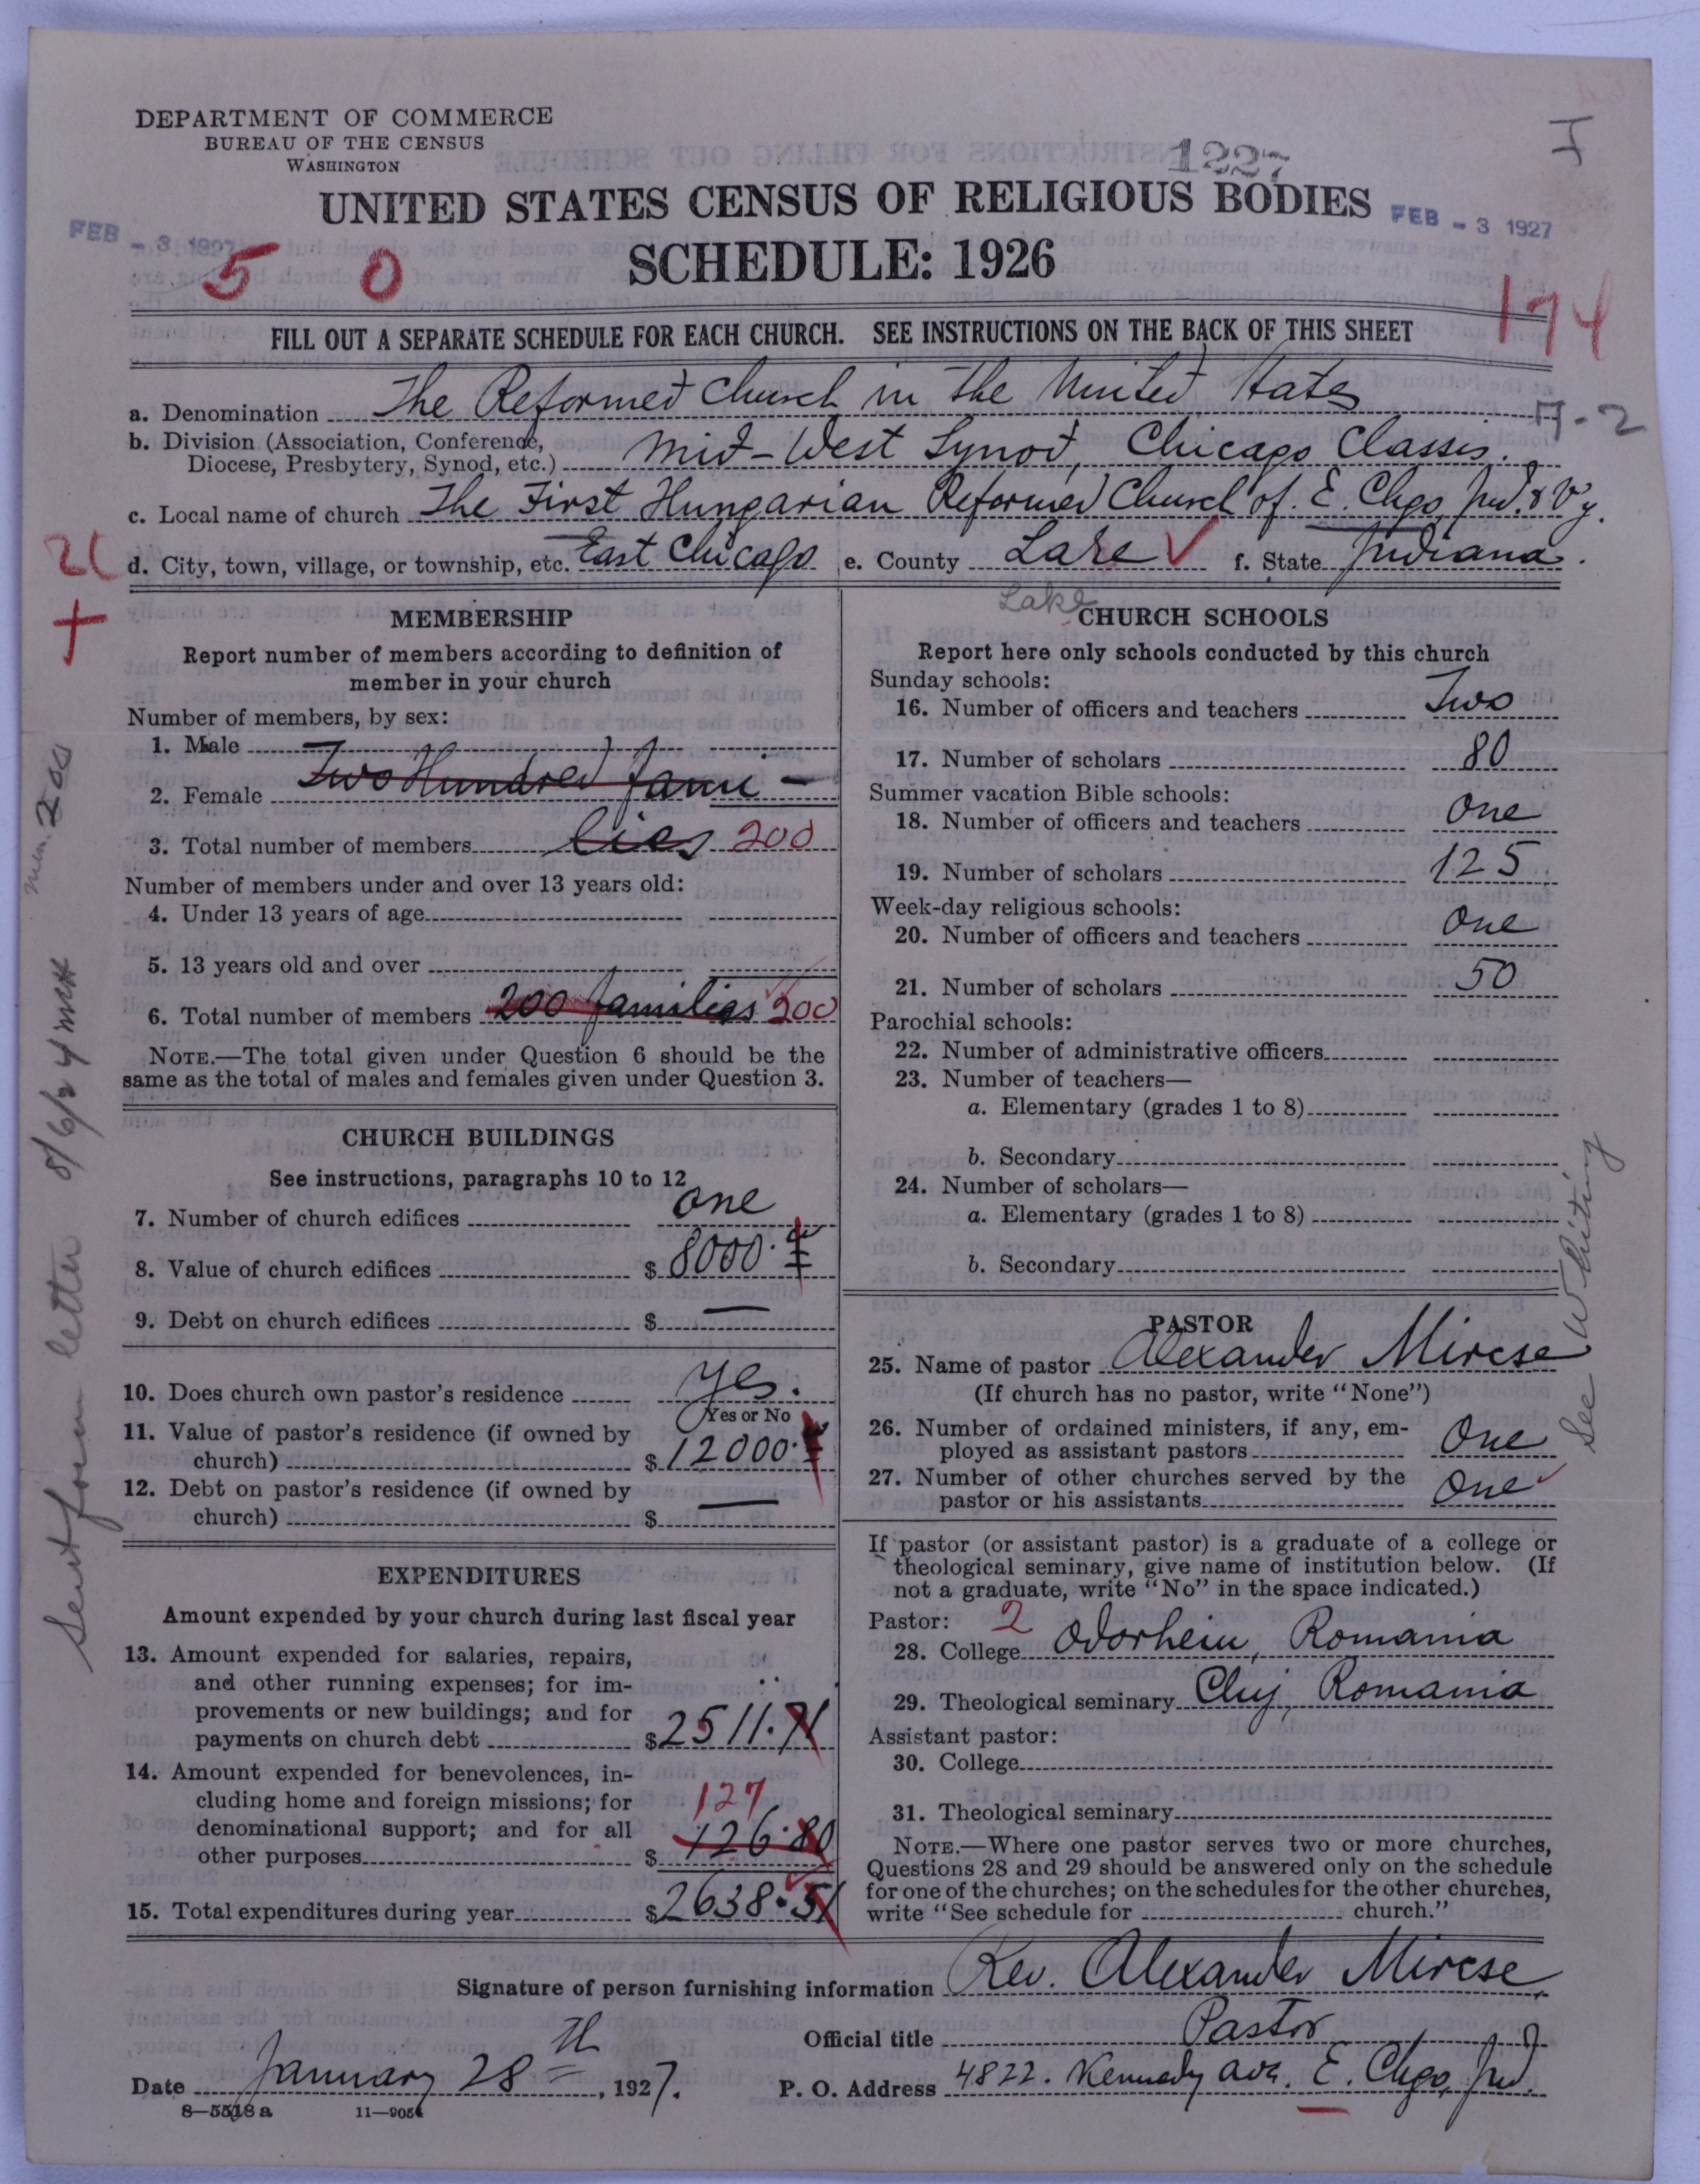 DEPARTMENT OF COMMERCE
BUREAU OF THE CENSUS
WASHINGTON
1227
H
UNITED STATES CENSUS OF RELIGIOUS BODIES
FEB - 3 1927
FEB - 3 1927
SCHEDULE: 1926
5 0
174
FILL OUT A SEPARATE SCHEDULE FOR EACH CHURCH. SEE INSTRUCTIONS ON THE BACK OF THIS SHEET
a. Denomination The Reformed Church in the United States
b. Division (Association, Conference, Diocese, Presbytery, Synod, etc.) Mid-West Synod, Chicago Classis.
c. Local name of church The First Hungarian Reformed Church of E. Chgo, Ind. & Vy.
d. City, town, village, or township, etc. East Chicago e. County Lake f. State Indiana.
Lake
MEMBERSHIP
Report number of members according to definition of
member in your church
Number of members, by sex:
1. Male
2. Female Two Hundred Fami-
3. Total number of members lies 200
Number of members under and over 13 years old:
4. Under 13 years of age
5. 13 years old and over
6. Total number of members 200 families 200
NOTE.—The total given under Question 6 should be the
same as the total of males and females given under Question 3.
CHURCH BUILDINGS
See instructions, paragraphs 10 to 12
7. Number of church edifices one
8. Value of church edifices $ 8000.
9. Debt on church edifices $ —
10. Does church own pastor's residence yes.
Yes or No
11. Value of pastor's residence (if owned by
church) $ 12000.
12. Debt on pastor's residence (if owned by
church) $ —
EXPENDITURES
Amount expended by your church during last fiscal year
13. Amount expended for salaries, repairs,
and other running expenses; for im-
provements or new buildings; and for
payments on church debt $ 2511.71
14. Amount expended for benevolences, in-
cluding home and foreign missions; for 127
denominational support; and for all
other purposes $ 126.80
15. Total expenditures during year $ 2638.51
CHURCH SCHOOLS
Report here only schools conducted by this church
Sunday schools:
16. Number of officers and teachers Two
17. Number of scholars 80
Summer vacation Bible schools:
18. Number of officers and teachers One
19. Number of scholars 125
Week-day religious schools:
20. Number of officers and teachers One
21. Number of scholars 50
Parochial schools:
22. Number of administrative officers
23. Number of teachers—
a. Elementary (grades 1 to 8)
b. Secondary
24. Number of scholars—
a. Elementary (grades 1 to 8)
b. Secondary
PASTOR
25. Name of pastor Alexander Mircse
(If church has no pastor, write "None")
26. Number of ordained ministers, if any, em-
ployed as assistant pastors One
27. Number of other churches served by the
pastor or his assistants One
If pastor (or assistant pastor) is a graduate of a college or
theological seminary, give name of institution below. (If
not a graduate, write "No" in the space indicated.)
Pastor: 2
28. College Odorheiu, Romania
29. Theological seminary Cluj, Romania
Assistant pastor:
30. College
31. Theological seminary
NOTE.—Where one pastor serves two or more churches,
Questions 28 and 29 should be answered only on the schedule
for one of the churches; on the schedules for the other churches,
write "See schedule for church."
See Whiting
Sent form letter 8/6/24
Signature of person furnishing information Rev. Alexander Mircse,
Official title Pastor
Date January 28th, 1927. P. O. Address 4822. Kennedy ave. E. Chgo, Ind.
8—5518a 11—9054